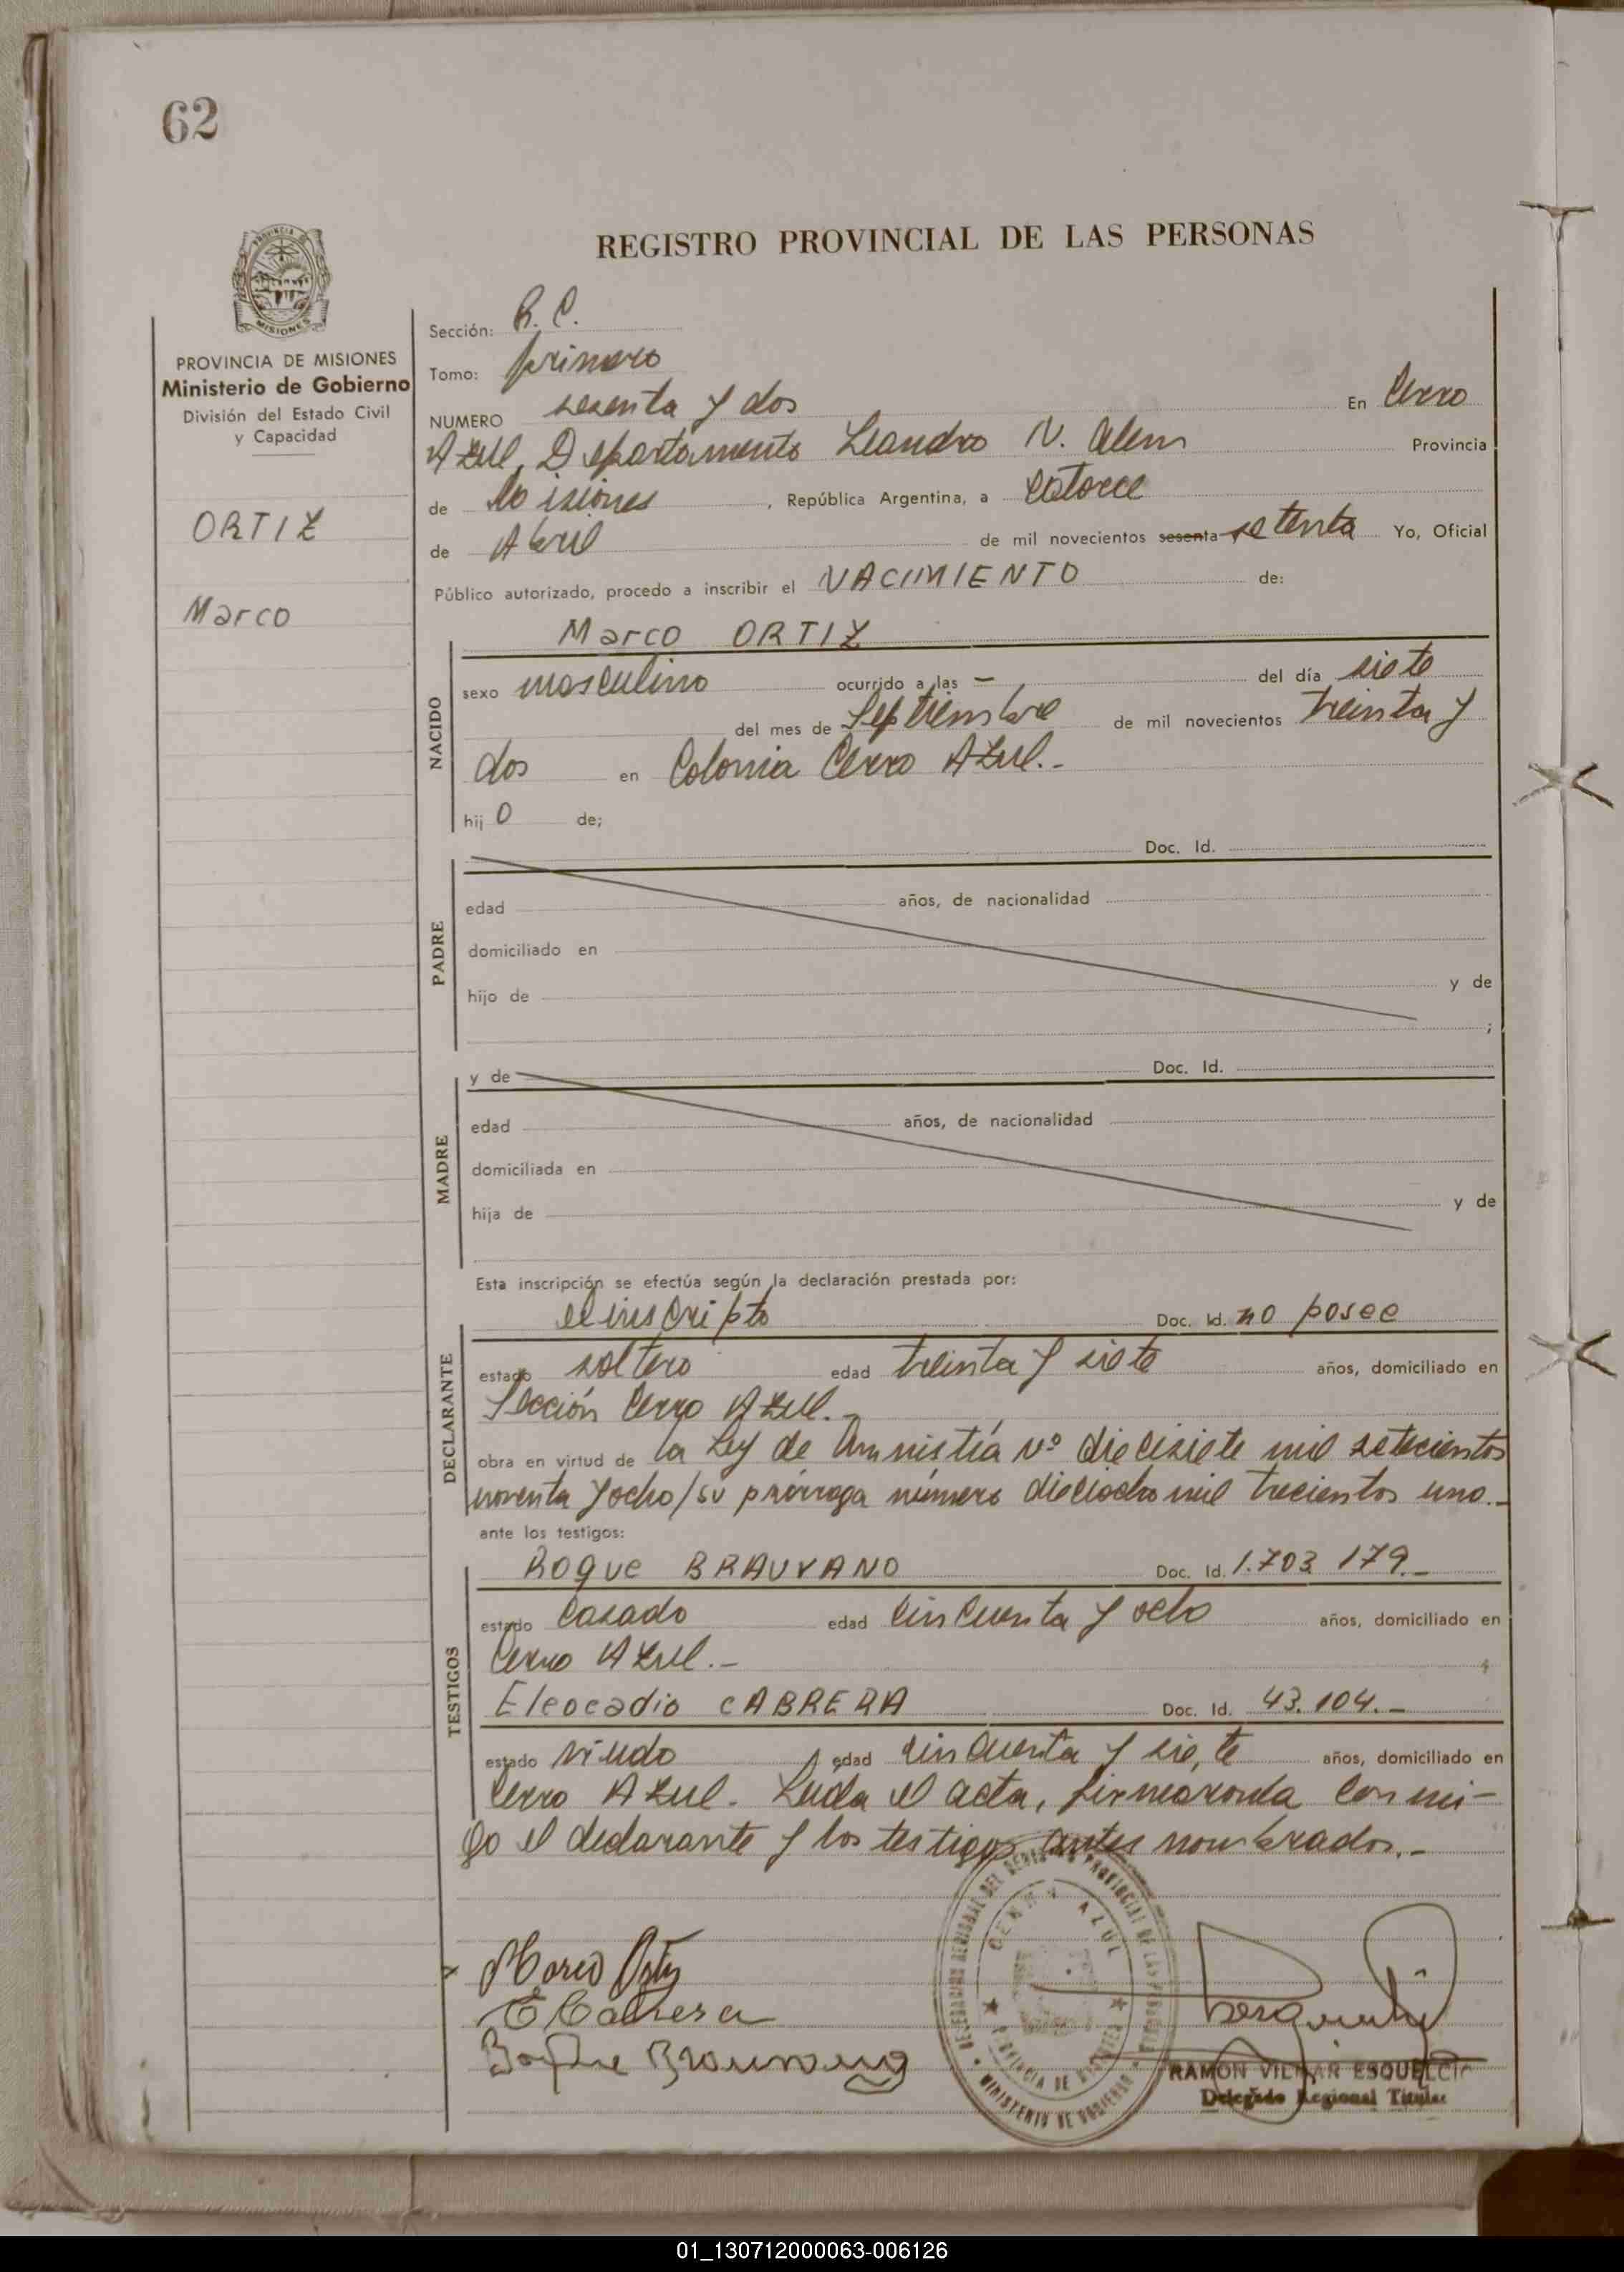 62
REGISTRO PROVINCIAL DE LAS PERSONAS
PROVINCIA DE MISIONES
Ministerio de Gobierno
División del Estado Civil
y Capacidad
ORTIZ
Marco
Sección: R. C.
Tomo: primero
NUMERO sesenta y dos En Cerro
Azul, Departamento Leandro N. Alem Provincia
de Misiones, República Argentina, a catorce
de Abril de mil novecientos sesenta setenta Yo, Oficial
Público autorizado, procedo a inscribir el NACIMIENTO de:
Marco ORTIZ
NACIDO
sexo masculino ocurrido a las — del día siete
del mes de Septiembre de mil novecientos treinta y
dos en Colonia Cerro Azul.-
hij o de;
PADRE
Doc. Id.
edad años, de nacionalidad
domiciliado en
hijo de y de
;
MADRE
y de Doc. Id.
edad años, de nacionalidad
domiciliada en
hija de y de
Esta inscripción se efectúa según la declaración prestada por:
DECLARANTE
el inscripto Doc. Id. no posee
estado soltero edad treinta y siete años, domiciliado en
Sección Cerro Azul.-
obra en virtud de la Ley de Amnistía Nº diecisiete mil setecientos
noventa y ocho/su prórroga número dieciocho mil trecientos uno.-
ante los testigos:
TESTIGOS
Roque BRAUVANO Doc. Id. 1.703.179.-
estado casado edad cincuenta y ocho años, domiciliado en
Cerro Azul.-
Eleocadio CABRERA Doc. Id. 43.104.-
estado viudo edad cincuenta y siete años, domiciliado en
Cerro Azul. Leída el acta, firmaronla conmi-
go el declarante y los testigos antes nombrados.-
Marco Ortiz
E Cabrera
CERRO AZUL
PROVINCIA DE MISIONES
MINISTERIO DE GOBIERNO
RAMON VILMAR ESQUELCIC
Delegado Regional Titular
01_130712000063-006126